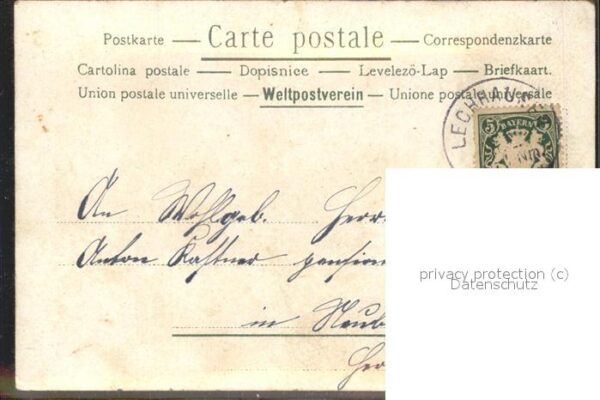 Postkarte — Carte postale — Correspondenzkarte
Cartolina postale — Dopisnice — Levelező-Lap — Briefkaart.
Union postale universelle — Weltpostverein — Unione postale universale
LECHHAUSEN
5 BAYERN 5
An Wohlgeb. Herr
Anton Kastner pension
in Neub
Her
privacy protection (c)
Datenschutz